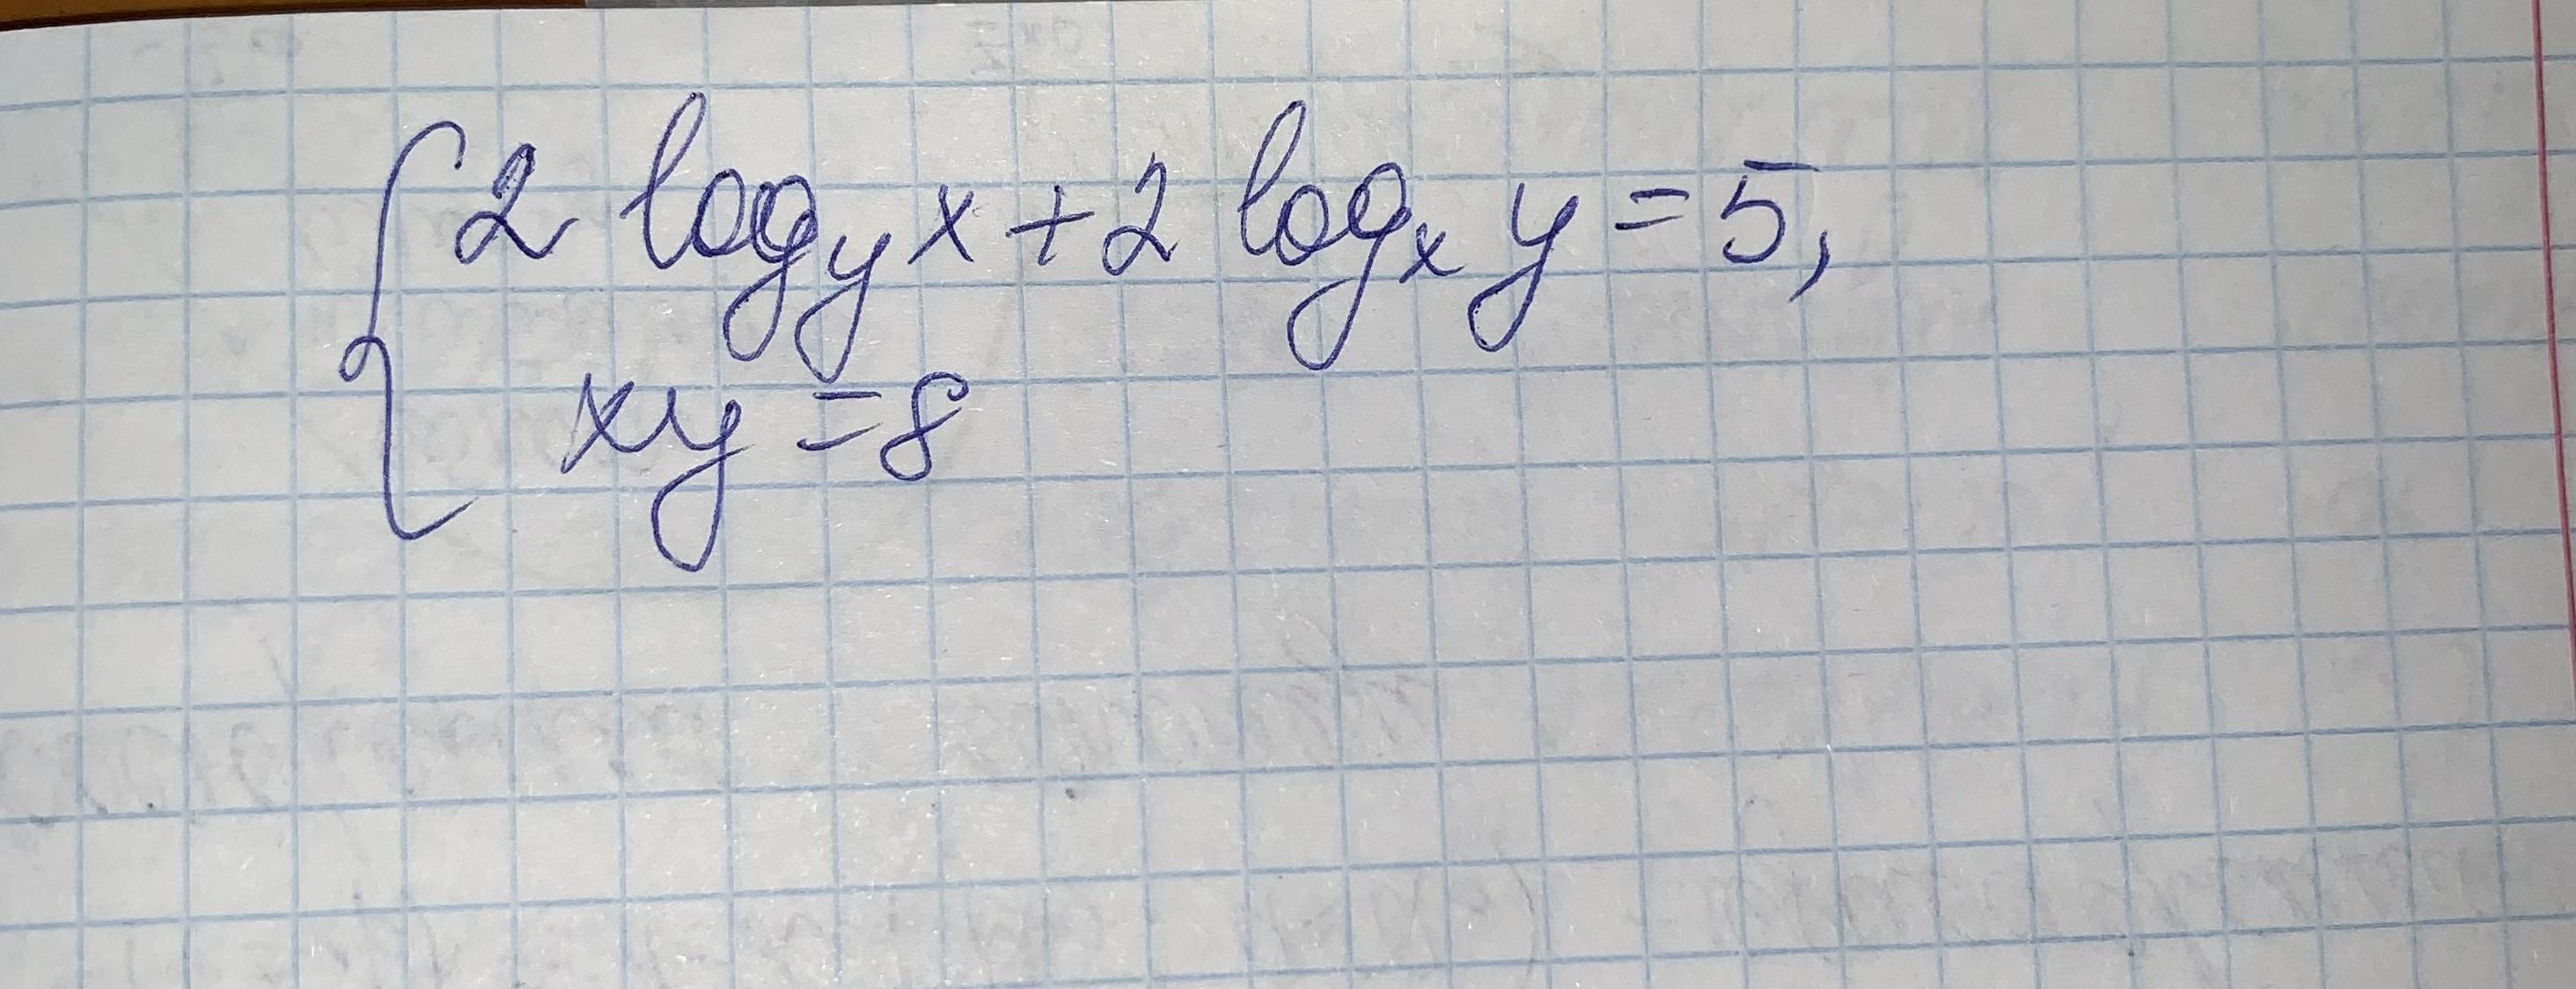 { 2 log_y x + 2 log_x y = 5,
xy = 8